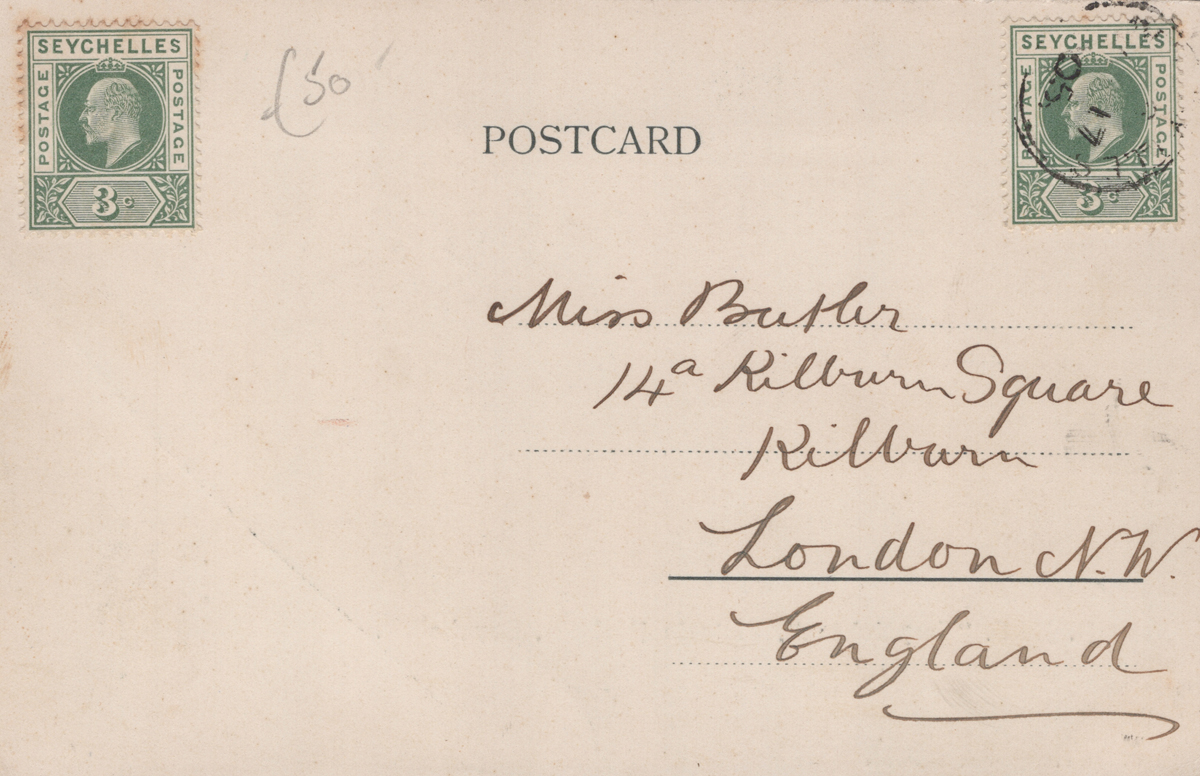 SEYCHELLES
POSTAGE
POSTAGE
3c
£50
POSTCARD
SEYCHELLES
POSTAGE
POSTAGE
3c
05
Miss Butler
14a Kilburn Square
Kilburn
London N.W.
England